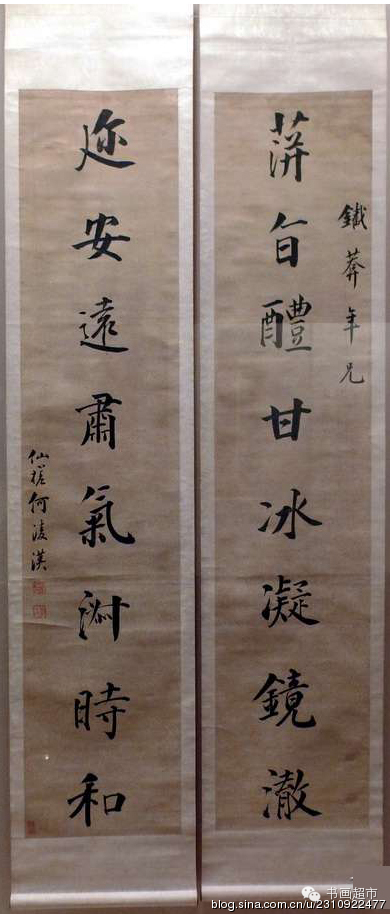 鐵莽年兄
蓱旨醴甘冰凝鏡澈
迩安遠肅氣淑時和
仙槎何淩漢
书画超市
blog.sina.com.cn/u/2310922477